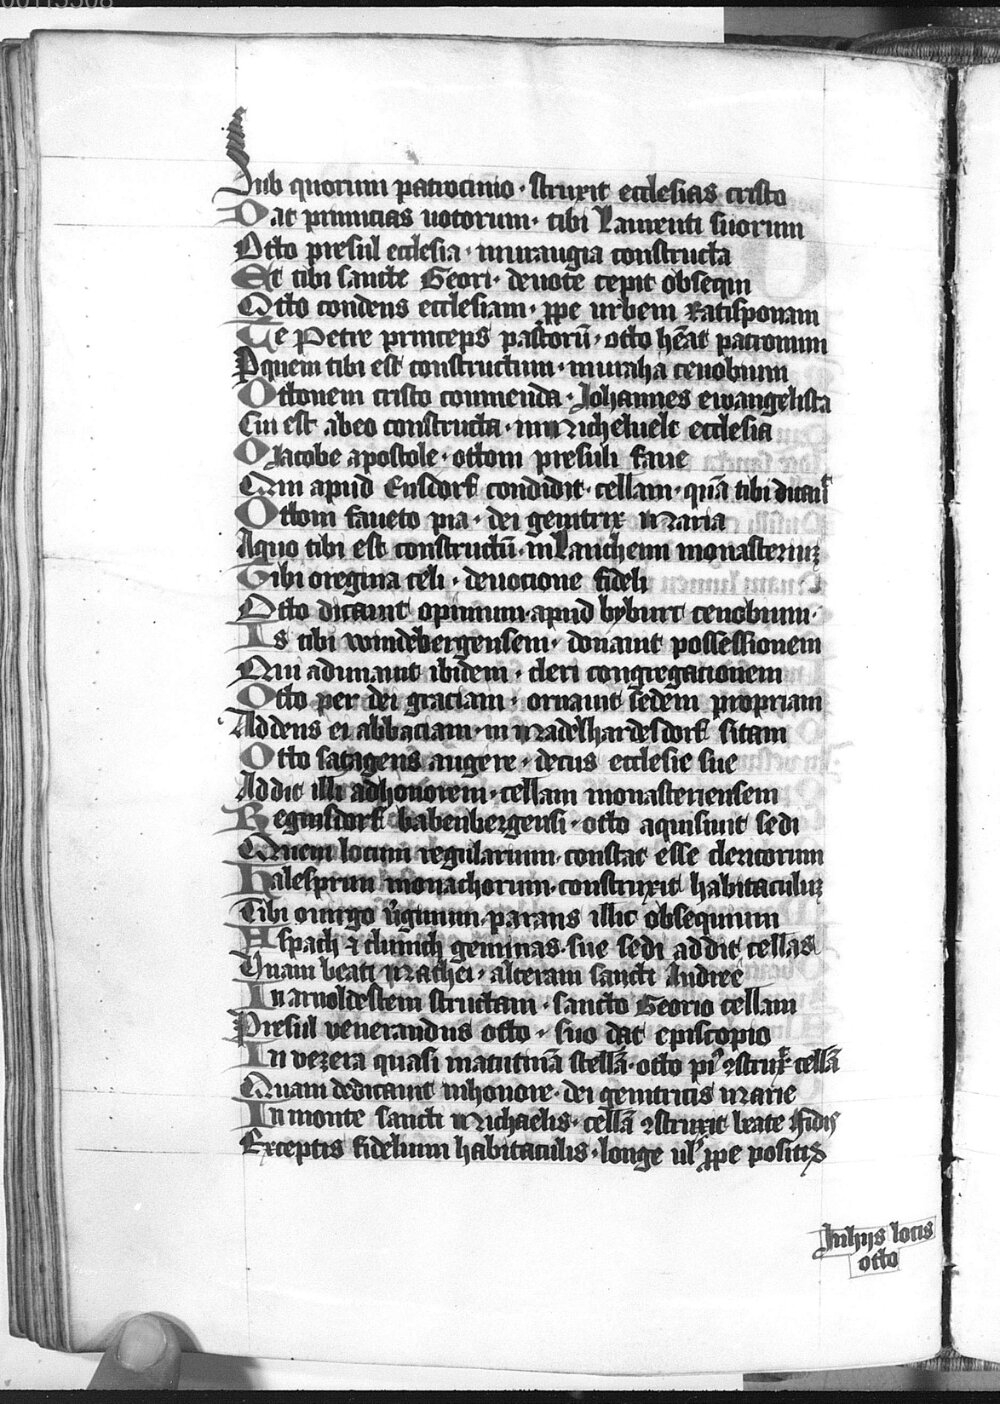 Sub quorum patrocinio · struxit ecclesias cristo
Dat primicias uotorum · tibi Laurenti suorum
Otto presul ecclesia · muraugia constructa
Et tibi sancte Geori · deuote cepit obsequi
Otto condens ecclesiam · ꝓpe urbem Ratisponam
Te Petre princeps pastorū · otto hēat patronum
Per quem tibi est constructum · muraha cenobium
Ottonem cristo commenda · Johannes ewangelista
Cui est abeo constructa · inn Michelvelt ecclesia
O Jacobe apostole · ottoni presuli faue
Qui apud Ensdorf condidit · cellam · quā tibi
Ottoni faueto pia · dei genitrix Maria
Aquo tibi est constructū · in Lancheim monasteriuꝫ
Tibi oregina celi · deuotione fideli
Otto dicauit opimum · apud byburc cenobium ·
Is tibi windebergensem · donauit possessionem
Qui adunauit ibidem · cleri congregationem
Otto per dei graciam · ornauit sedem propriam
Addens ei abbaciam · in Madelhardesdorf sitam
Otto satagens augere · decus ecclesie sue
Addit illi adhonorem · cellam monasteriensem
Reginsdorf babenbergensi · otto aquisiuit sedi
Quem locum regularium · constat esse clericorum
Halesprun monachorum · construxit habitaculuꝫ
Tibi ouirgo v̄ginum · parans illic obsequium
Aspach ⁊ thunich geminas · sue sedi addit cellas
Vnam beati Mathei · alteram sancti Andree
In arnoldestein structam · sancto Georio cellam
Presul venerandus otto · suo dat episcopio
In vezera quasi matutinā stellā · otto piꝰ ꝯstrux̄ cellā
Quam dedicauit inhonore · dei genitricis marie
In monte sancti Michaelis · cellā ꝯstruxit beate fidis
Exceptis fidelium habitaculis · longe ul̄ ꝓpe positis
Inhijs locis
otto